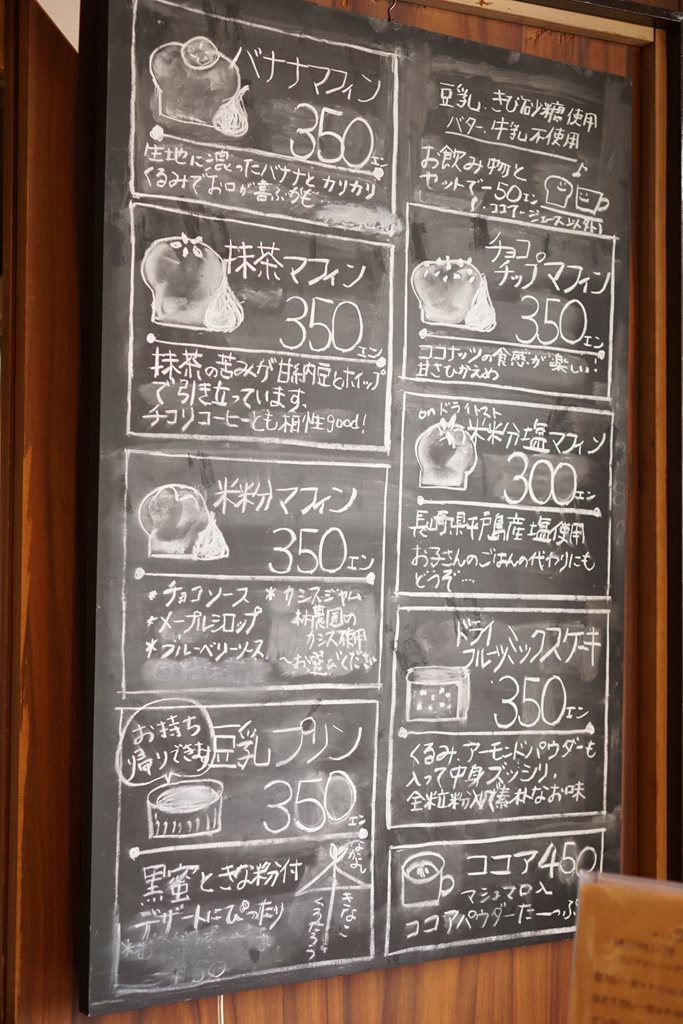 バナナマフィン
350エン
生地に混ったバナナと カリカリ
くるみでお口が喜ぶかも
豆乳、きび砂糖使用
バター、牛乳不使用
お飲み物と
セットでー50エン
ココアージュース以外
抹茶マフィン
350エン
抹茶の苦みが甘納豆とホイップ
で引き立っています。
チコリコーヒーとも相性good!
チョコ
チップマフィン
350エン
ココナッツの食感が楽しい!
甘さひかえめ
米粉マフィン
350エン
*チョコソース
*メープルシロップ
*ブルーベリーソース
*カシスジャム
林農園の
カシス使用
〜お選びください
onドライトマト
米粉塩マフィン
300エン
長崎県平戸島産塩使用
お子さんのごはんの代わりにも
どうぞ…
ドライ
フルーツミックスケーキ
350エン
くるみ、アーモンドパウダーも
入って中身ズッシリ。
全粒粉入りで素朴なお味
お持ち
帰りできます
豆乳プリン
350エン
黒蜜ときな粉付
デザートにぴったり
きなこ
くろみつ
ココア450
マシュマロ入
ココアパウダーたーっぷり